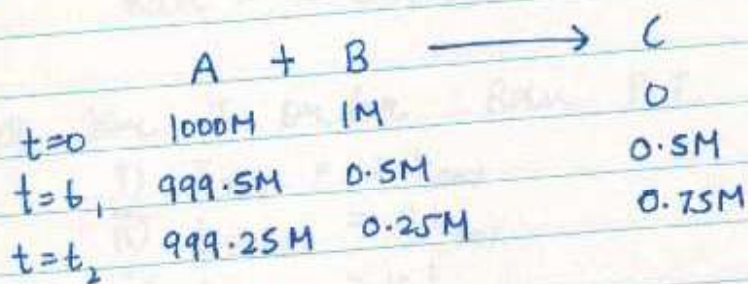 A + B ⟶ C
t=0 1000M 1M 0
t=t₁ 999.5M 0.5M 0.5M
t=t₂ 999.25M 0.25M 0.75M